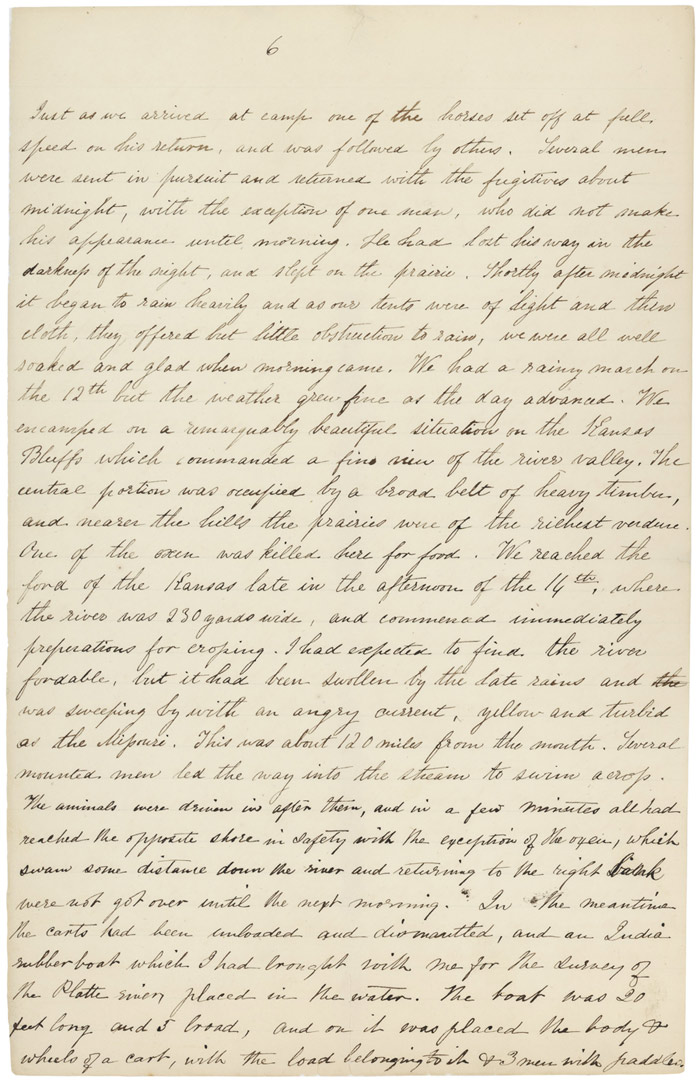 6
Just as we arrived at camp one of the horses set off at full
speed on his return, and was followed by others. Several men
were sent in pursuit and returned with the fugitives about
midnight, with the exception of one man, who did not make
his appearance until morning. He had lost his way in the
darkness of the night, and slept on the prairie. Shortly after midnight
it began to rain heavily and as our tents were of light and thin
cloth, they offered but little obstruction to rain, we were all well
soaked and glad when morning came. We had a rainy march on
the 12th but the weather grew fine as the day advanced. We
encamped on a remarquably beautiful situation on the Kansas
Bluffs which commanded a fine view of the river valley. The
central portion was occupied by a broad belt of heavy timber,
and nearer the hills the prairies were of the richest verdure.
One of the oxen was killed here for food. We reached the
ford of the Kansas late in the afternoon of the 14th, where
the river was 230 yards wide, and commenced immediately
preperations for crossing. I had expected to find the river
fordable, but it had been swollen by the late rains and the
was sweeping by with an angry current, yellow and turbid
as the Missouri. This was about 120 miles from the mouth. Several
mounted men led the way into the stream to swim across.
The animals were driven in after them, and in a few minutes all had
reached the opposite shore in safety with the exception of the oxen, which
swam some distance down the river and returning to the right bank
were not got over until the next morning. In the meantime
the carts had been unloaded and dismantled, and an India
rubber boat which I had brought with me for the survey of
the Platte river, placed in the water. The boat was 20
feet long and 5 broad, and on it was placed the body &
wheels of a cart, with the load belonging to it & 3 men with paddles.